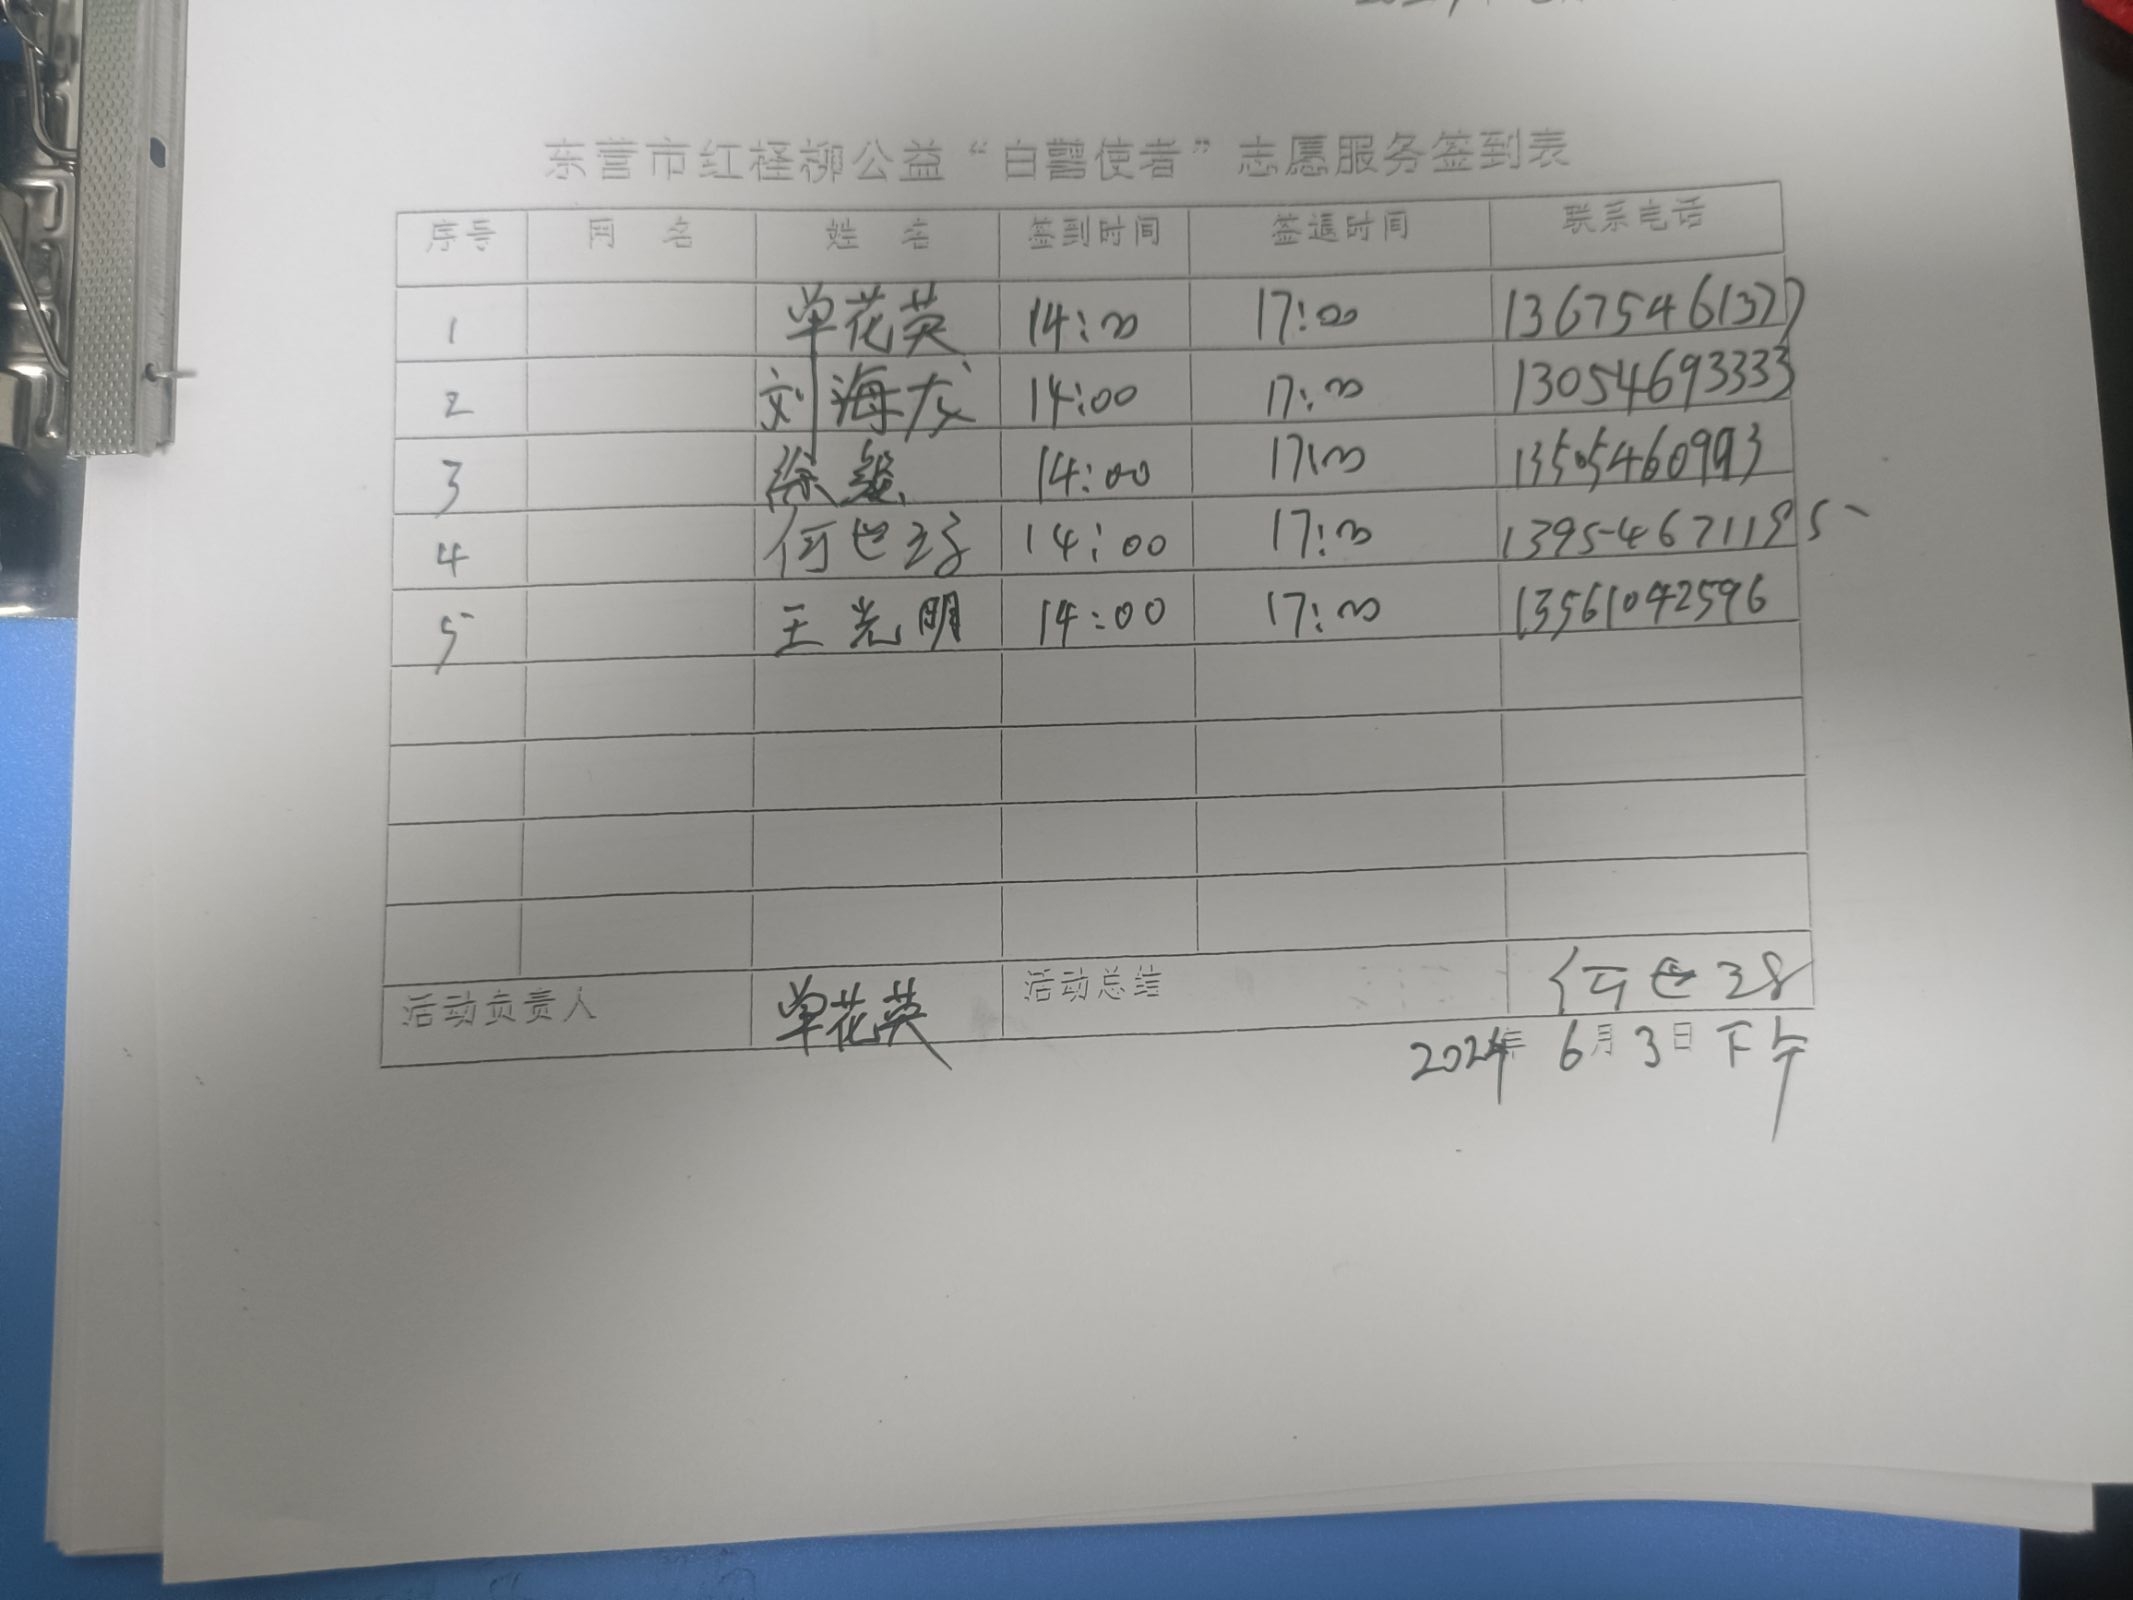 东营市红柽柳公益“白鹭使者”志愿服务签到表
序号 网 名 姓 名 签到时间 签退时间 联系电话
1 单花英 14:00 17:00 13675461377
2 刘海龙 14:00 17:00 13054693333
3 徐 14:00 17:00 13505460993
4 何世 14:00 17:00
5 王光明 14:00 17:00 13561042596
活动负责人 单花英 活动总结 何世
2024年 6月 3日 下午